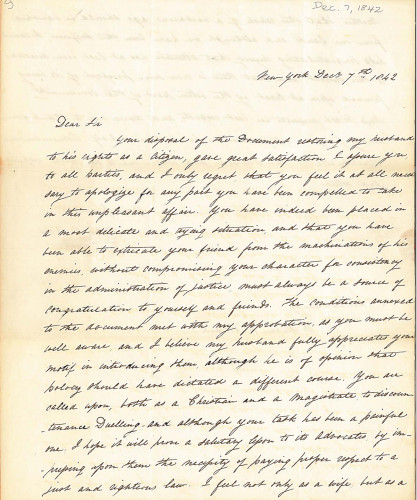 Dec. 7, 1842
New York Dec 7th 1842
Dear Sir
Your disposal of the Document restoring my husband
to his rights as a Citizen, gave great satisfaction I assure you
to all parties, and I only regret that you feel it at all neces
sary to apologize for any part you have been compelled to take
in this unpleasant affair. You have indeed been placed in
a most delicate and trying situation, and that you have
been able to extricate your friend from the machinations of his
enemies, without compromising your character for consistency
in the administration of justice must always be a source of
congratulation to yourself and friends. The conditions annexed
to the document met with my approbation, as you must be
well aware, and I believe my husband fully appreciates your
motif in introducing them, although he is of opinion that
policy should have dictated a different course. You are
called upon, both as a Christian and a Magistrate to discoun-
tenance Duelling and although your task has been a painful
one. I hope it will prove a salutary lesson to its advocates by im-
pressing upon them the necessity of paying proper respect to a
just and righteous law. I feel not only as a wife, but as a